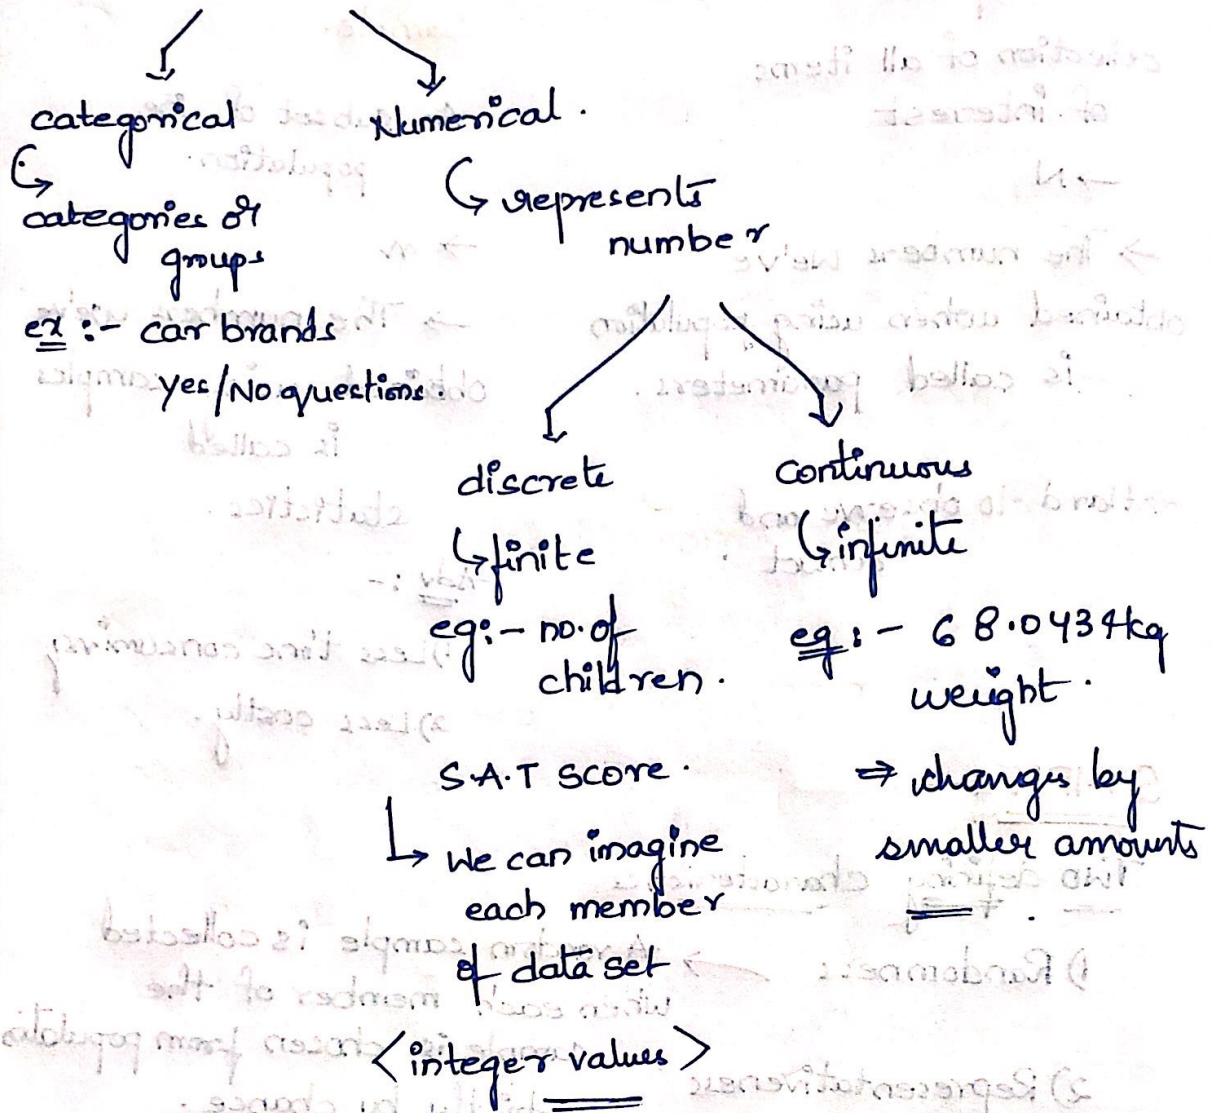 categorical
Numerical.
categories or
groups
ex :- car brands
Yes/No questions.
represents
number
discrete
finite
eg:- no. of
children.
S.A.T score.
We can imagine
each member
of data set
<integer values>
continuous
infinite
eg:- 68.0434kg
weight.
⇒ changes by
smaller amounts